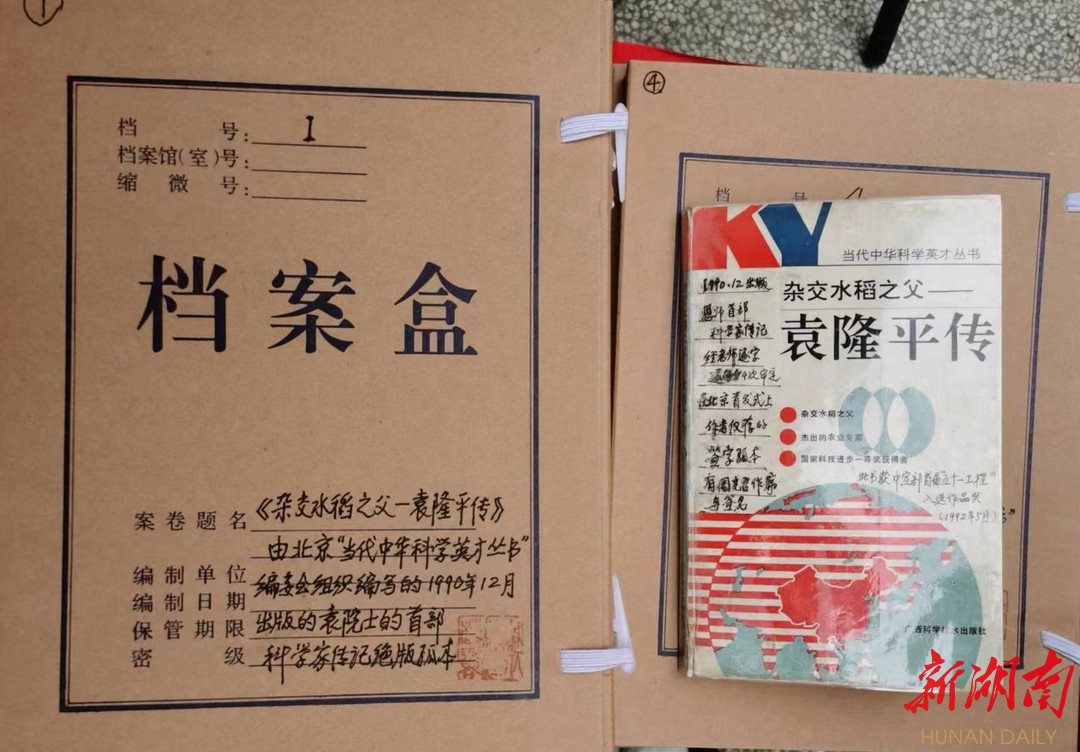 1
档 号: 1
档案馆(室)号:
缩 微 号:
档案盒
案卷题名 《杂交水稻之父—袁隆平传》
由北京"当代中华科学英才丛书"
编制单位 编委会组织编写的1990年12月
编制日期
保管期限 出版的袁院士的首部
密 级 科学家传记绝版孤本
④
档 号
KY
当代中华科学英才丛书
杂交水稻之父——
袁隆平传
1990.12出版
恩师首部
科学家传记
经老师逐字
4次审定
在北京首发式上
作者仅存的
签字孤本
有周光召作序
与签名
杂交水稻之父
杰出的农业专家
国家科技进步一等奖获得者
此书获中宣部首届五个一工程"
入选作品奖
(1992年5月)
广西科学技术出版社
新湖南
HUNAN DAILY